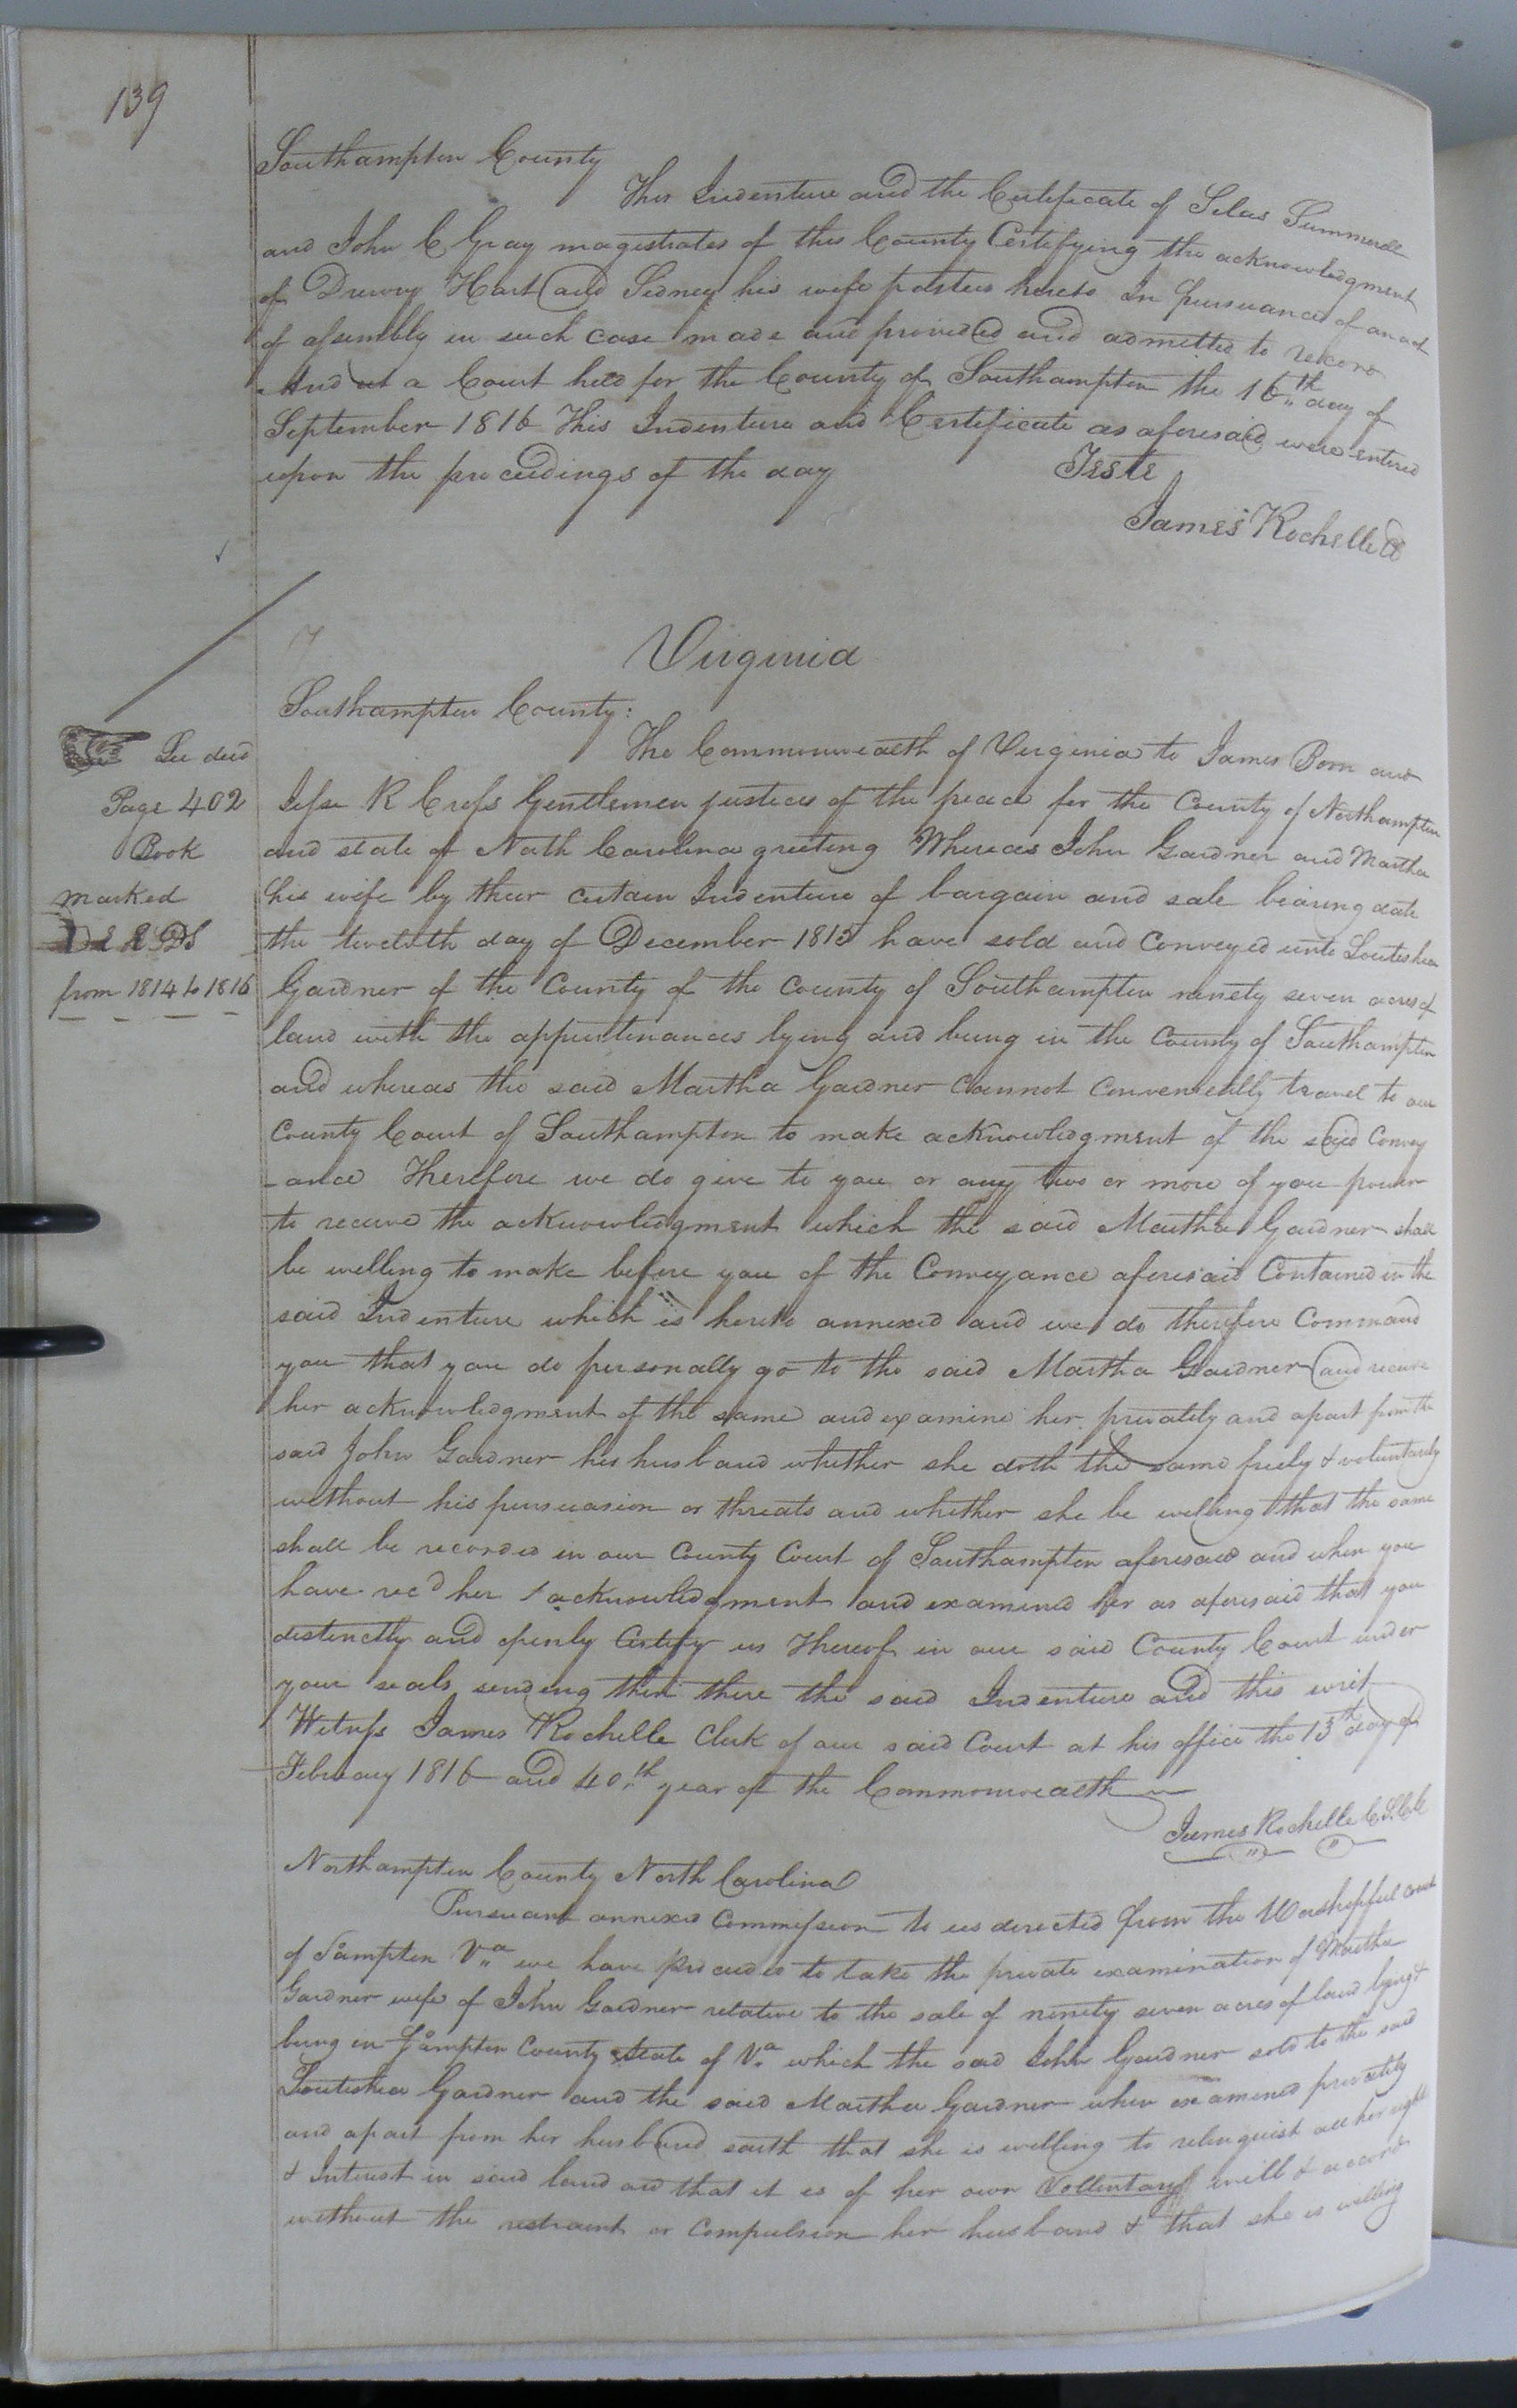 139
Southampton County
This Indenture and the Certificate of Silas Summerell
and John C Gray magistrates of this County Certifying the acknowledgment
of Drewry Hart and Sidney his wife parties hereto In pursuance of an act
of assembly in such case made and provided and admitted to record
And at a Court held for the County of Southampton the 16th day of
September 1816 This Indenture and Certificate as aforesaid were entered
upon the proceedings of the day Teste
James Rochelle Cl
Virginia
Southampton County:
The Commonwealth of Virginia to James Born and
See deed
Page 402
Book
marked
DEEDS
from 1814 to 1816
Jesse R Cross Gentlemen justices of the peace for the County of Northampton
and state of North Carolina greeting Whereas John Gardner and Martha
his wife by their certain Indenture of bargain and sale bearing date
the twelvth day of December 1815 have sold and Conveyed unto
Gardner of the County of the County of Southampton ninety seven acres of
land with the appurtenances lying and being in the County of Southampton
and whereas the said Martha Gardner Cannot Conveniently travel to our
County Court of Southampton to make acknowledgment of the said Convey
-ance Therefore we do give to you or any two or more of you power
to receive the acknowledgment which the said Martha Gardner shall
be willing to make before you of the Conveyance aforesaid Contained in the
said Indenture which is hereto annexed and we do therefore Command
you that you do personally go to the said Martha Gardner and receive
her acknowledgment of the same and examine her privately and apart from the
said John Gardner his husband whether she doth the same freely & voluntarily
without his persuasion or threats and whether she be willing that the same
shall be recorded in our County Court of Southampton aforesaid and when you
have recd her acknowledgment and examined her as aforesaid that you
distinctly and openly Certify us Thereof in our said County Court under
your seals sending then there the said Indenture and this writ
Witness James Rochelle Clerk of our said Court at his office the 13th day of
February 1816 and 40th year of the Commonwealth
James Rochelle C.S.C.C
Northampton County North Carolina
Pursuant annexed Commission to us directed from the Worshipful Court
of S°ampton Va we have proceeded to take the private examination of Martha
Gardner wife of John Gardner relative to the sale of ninety seven acres of land lying &
being in S°ampton County State of Va which the said John Gardner sold to the said
Gardner and the said Martha Gardner when examined privately
and apart from her husband saith that she is willing to relinquish all her right
& Interest in said land and that it is of her own Vollentary will & accord
without the restraint or Compulsion her husband & that she is willing